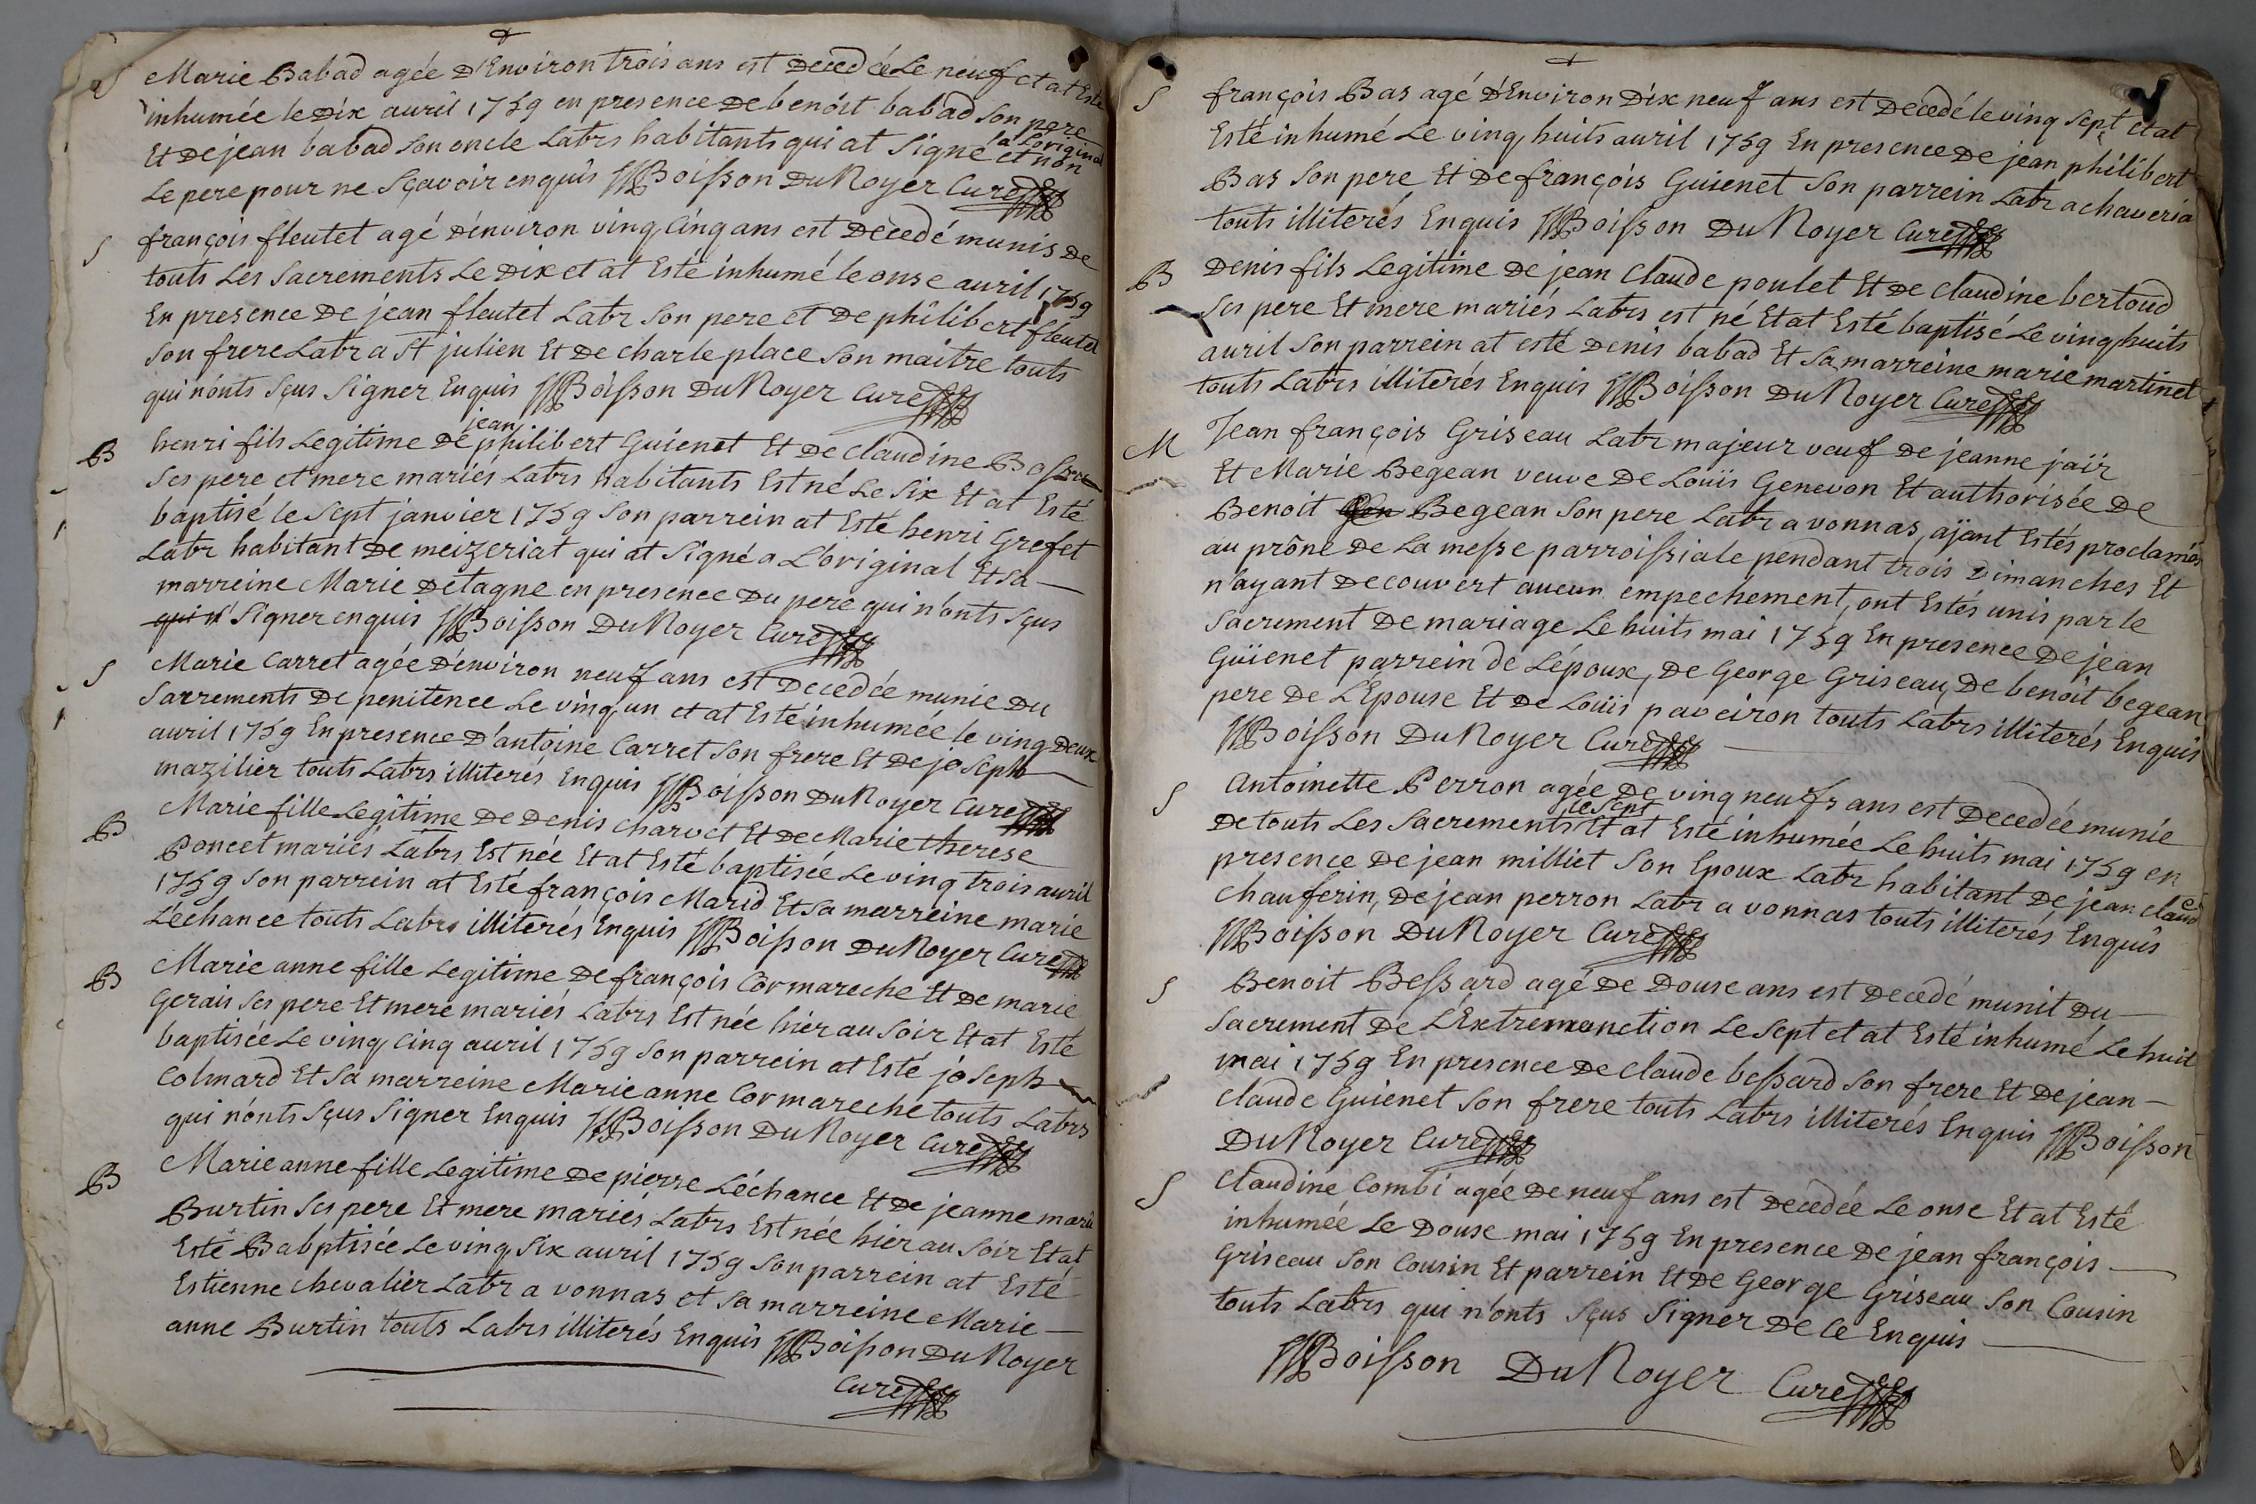 S Marie Babad agée D'Environ trois ans est Decedée Le neuf et at Esté
inhumée le Dix auril 1759 en presence De benoist babad son pere
Et De jean babad son oncle Labrs habitants qui at Signé a L'original et non
Le pere pour ne Sçavoir enquis Boisson Du Noyer Curé
S françois fleutet agé d'environ vinq Cinq ans est Decedé munis De
touts Les Sacrements Le Dix et at Esté inhumé le onse auril 1759
En presence De jean fleutet Labr son pere et De philibert fleutet
son frere Labr a St julien Et De charle place son maitre touts
qui n'onts Sçus Signer Enquis Boisson Du Noyer Curé
B henri fils Legitime De jean philibert Guienet Et De Claudine
Ses pere et mere mariés Labrs habitants Est né Le Six Et at Esté
baptisé le Sept janvier 1759 Son parrein at Esté henri Grefet
Labr habitant De meizeriat qui at Signé a L'original Et Sa
marreine Marie Detagne en presence Du pere qui n'onts Sçus
qui n' Signer enquis Boisson Du Noyer Curé
S Marie Carret agée D'environ neuf ans est Decedée munie Du
Sacrements De penitence Le vinq un et at Esté inhumée le vinq Deux
auril 1759 En presence D'antoine Carret Son frere Et De joseph
mazilier touts Labrs illiterés Enquis Boisson Du Noyer Curé
B Marie fille Legitime De Denis charvet Et De Marie therese
Poncet mariés Labrs Est née Et at Esté baptisée Le vinq trois auril
1759 Son parrein at Esté françois Marid Et Sa marreine marie
Léchance touts Labrs illiterés Enquis Boisson Du Noyer Curé
B Marie anne fille Legitime De françois Cormareche Et De marie
Gerais Ses pere Et mere mariés Labrs Est née hier au Soir Et at Esté
baptisée Le vinq Cinq auril 1759 Son parrein at Esté joseph
Colmard Et Sa marreine Marie anne Cormareche touts Labrs
qui n'onts Sçus Signer Enquis Boisson Du Noyer Curé
B Marie anne fille Legitime De pierre Léchance Et De jeanne marie
Burtin Ses pere Et mere mariés Labrs Est née hier au Soir Et at
Esté Babptisée Le vinq Six auril 1759 Son parrein at Esté
Estienne chevalier Labr a vonnas et Sa marreine Marie
anne Burtin touts Labrs illiterés Enquis Boisson Du Noyer
Curé
S françois Bas agé D'Environ Dix neuf ans est Decedé le vinq Sept et at
Esté inhumé Le vinq huits auril 1759 En presence De jean philibert
Bas Son pere Et De françois Guienet Son parrein Labr a chaveria
touts illiterés Enquis Boisson Du Noyer Curé
B Denis fils Legitime De jean Claude poulet Et De claudine bertoud
Ses pere Et mere mariés Labrs est né Et at Esté baptisé Le vinq huits
auril Son parrein at esté Denis babad Et Sa marreine marie martinet
touts Labrs illiterés Enquis Boisson Du Noyer Curé
M Jean françois Griseau Labr majeur veuf De jeanne jaïr
Et Marie Begean veuve De Loüis Genevon Et authorisée De
Benoit Begean Son pere Labr a vonnas, aÿant Estés proclamés
au prône De La messe parroissiale pendant trois Dimanches Et
n'ayant Decouvert aucun empechement, ont Estés unis par le
Sacrement De mariage Le huits mai 1759 En presence De jean
Guïenet parrein de L'époux, De George Griseau, De benoit begean
pere De L'Epouse Et De Loüis paveiron touts Labrs illiterés Enquis
Boisson Du Noyer Curé
S Antoinette Perron agée De vinq neufs ans est Decedée munie
De touts Les Sacrements le Sept Et at Esté inhumée Le huits mai 1759 en
presence De jean milliet Son Epoux Labr habitant De jean claude
Chauferin, De jean perron Labr a vonnas touts illiterés, Enquis
Boisson Du Noyer Curé
S Benoit Bessard agé De Douse ans est Decedé munit Du
Sacrement De L'Extremonction Le Sept et at Esté inhumé Le huit
mai 1759 En presence De claude bessard Son frere Et De jean
claude Guienet Son frere touts Labrs illiterés Enquis Boisson
Du Noyer Curé
S Claudine Combi agée De neuf ans est Decedée Le onse Et at Esté
inhumée Le Douse mai 1759 En presence De jean françois
Griseau Son Cousin Et parrein Et De George Griseau Son Cousin
touts Labrs qui n'onts Sçus Signer De Ce Enquis
Boisson Du Noyer Curé